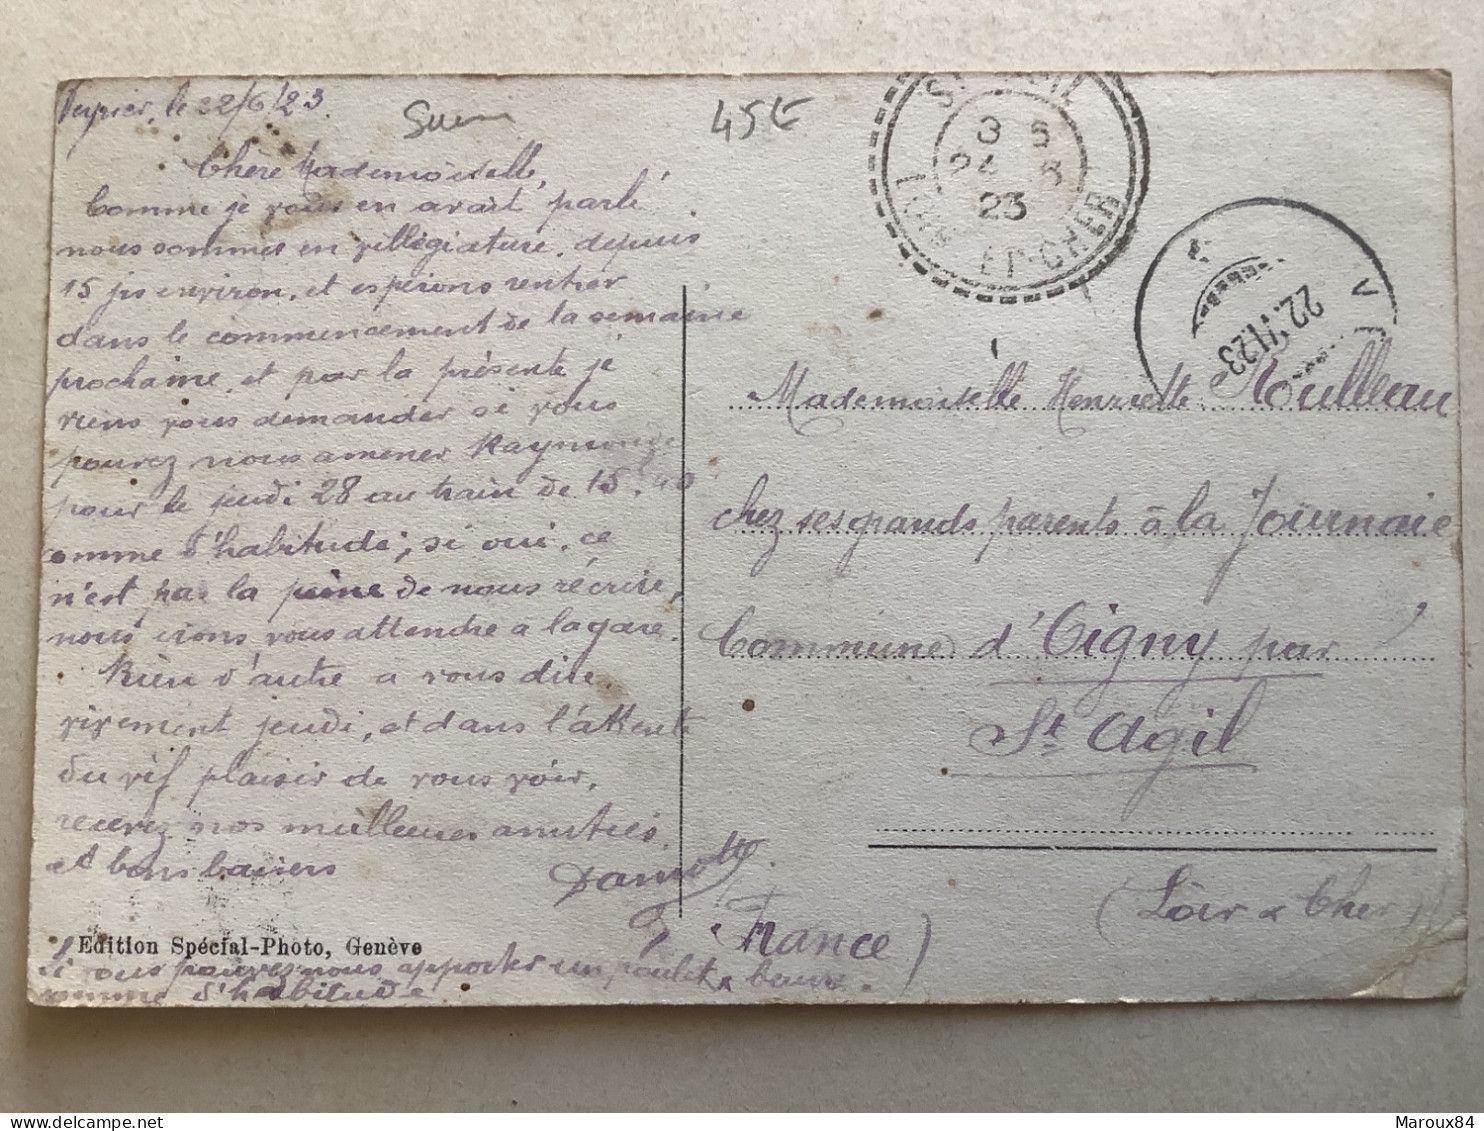 Veyrier, le 22/6/23.
Chère Mademoiselle,
Comme je vous en avait parlé
nous sommes en villègiature, depuis
15 jrs environ, et espèrons rentrer
dans le commencement de la semaine
prochaine, et par la présente je
viens vous demander si vous
pouvez nous amener Raymonde
pour le jeudi 28 au train de 15.40
comme d'habitude, si oui, ce
n'est pas la peine de nous récrire,
nous irons vous attendre à la gare.
Rien d'autre à vous dire,
vivement jeudi, et dans l'attente
du vif plaisir de vous voir,
recevez nos meilleures amitiés
et bons baisers
Edition Spécial-Photo, Genève
Si vous pouvez nous apporter un poulet & beurre.
comme d'habitude
Suisse
45€
ST AGIL
3 5
24 6
23
LOIR-ET-CHER
V
22.VI.23
Mademoiselle Henriette Moulleau
chez ses grands parents à la
Commune d'Oigny par
St Agil
(Loir & Cher)
France)
Maroux84